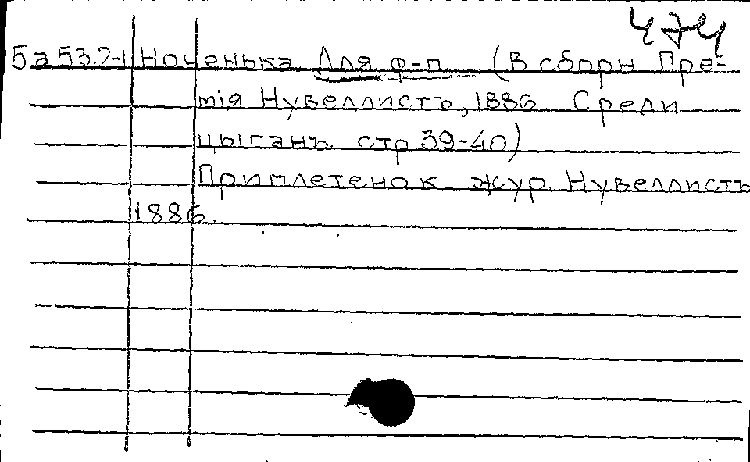 474
5а 537-1 Ноченька Для ф-п. (В сборн Пре-
мія Нувеллистъ, 1886 Среди
цыганъ стр 39-40)
Приплетено к жур. Нувеллистъ
1886.